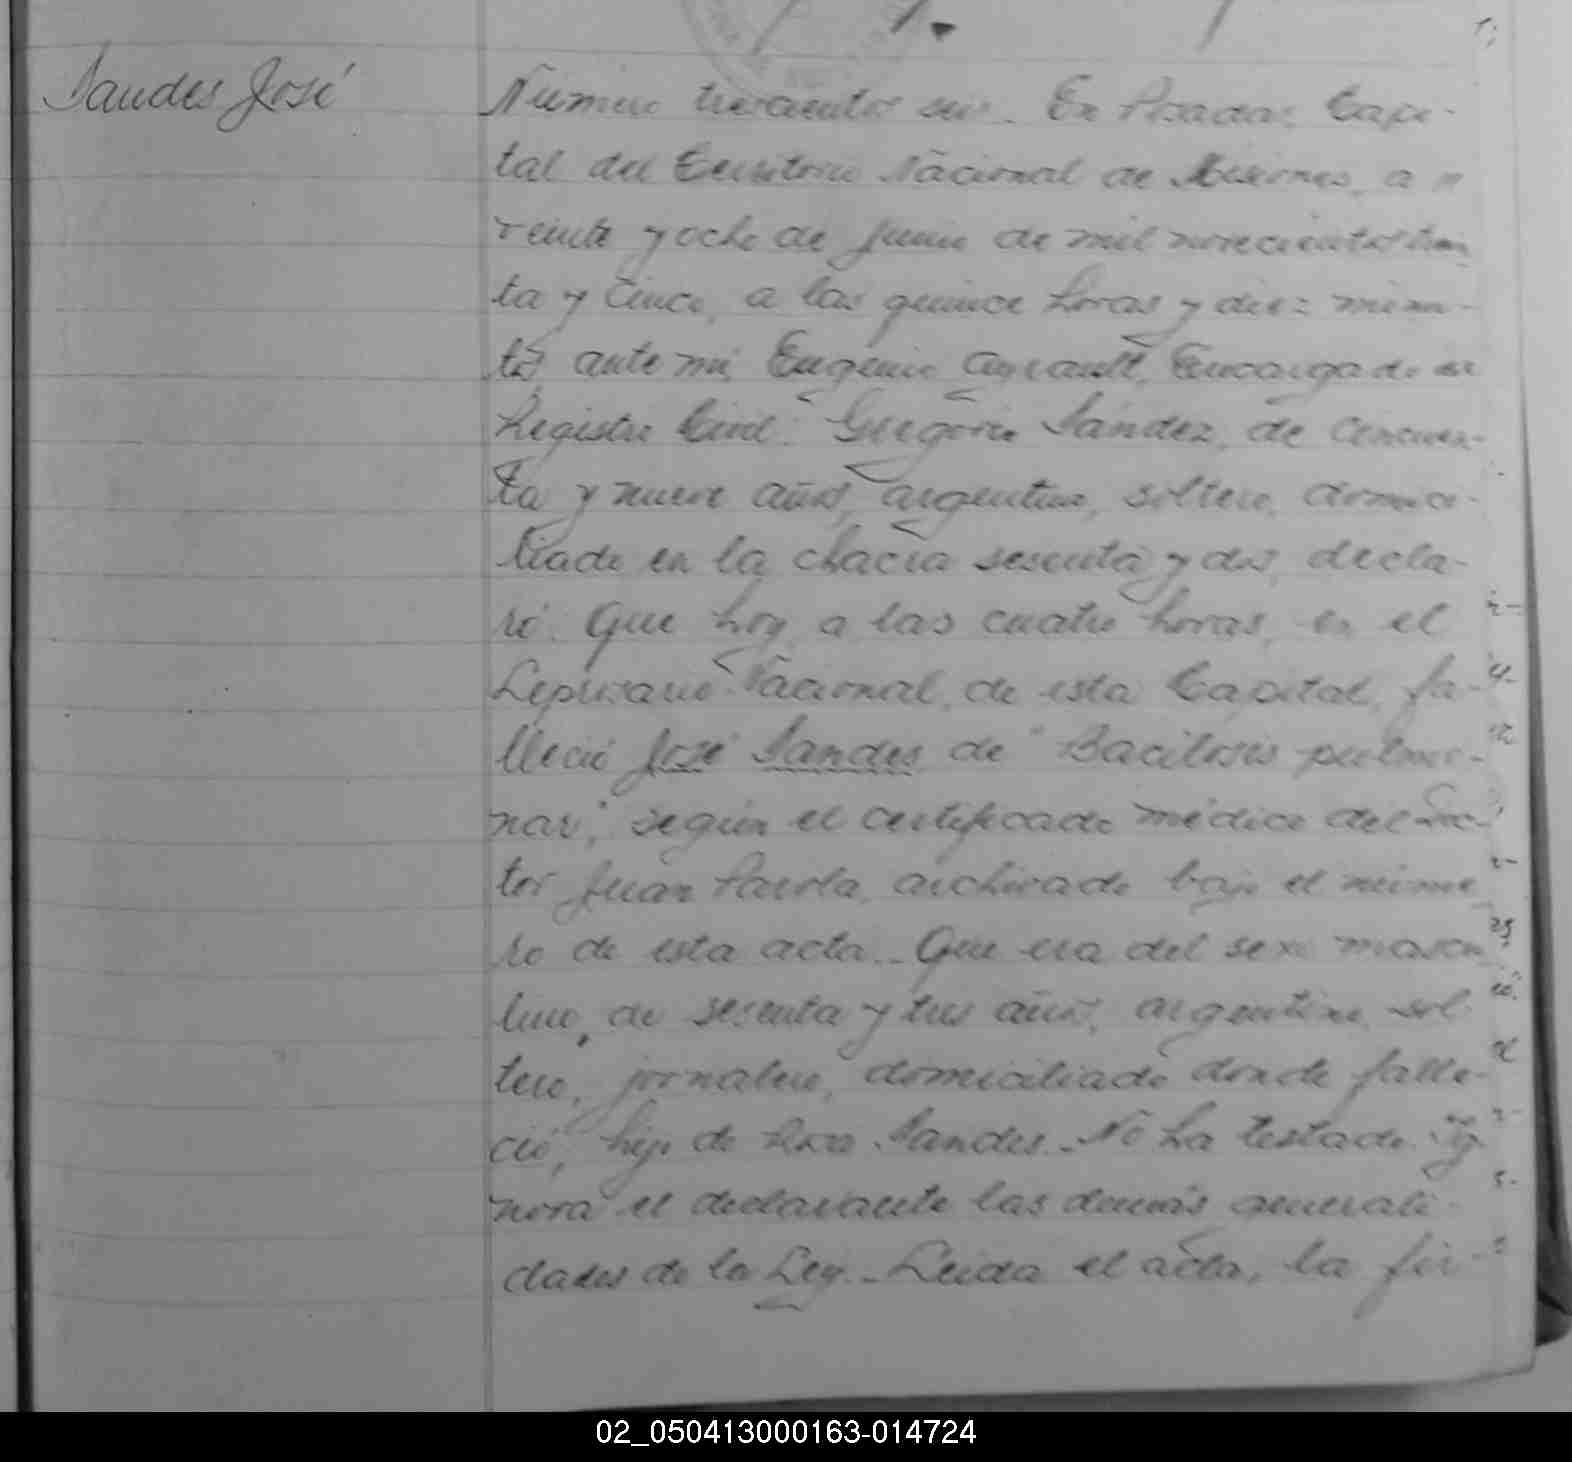 Sandes José
Número trescientos seis. En Posadas Capi-
tal del Territorio Nacional de Misiones, a
veinte y ocho de Junio de mil novecientos trein
ta y cinco, a las quince horas y diez minu-
tos ante mi, Eugenio Encargado del
Registro Civil: Gregorio Sández, de cincuen-
ta y nueve años, argentino, soltero, domici-
liado en la chacra sesenta y dos, decla-
ró: Que hoy a las cuatro horas, en el
Leprosario Nacional, de esta Capital, fa-
lleció José Sandes de "Bacilosis pulmo-
nar", según el certificado médico del Doc-
tor Juan archivado bajo el núme
ro de esta acta. Que era del sexo mascu
lino, de sesenta y tres años, argentino, sol
tero, jornalero, domiciliado donde falle-
ció, hijo de Sandes. No ha testado. Ig
nora el declarante las demás generali-
dades de la Ley. Leida el acta, la fir-
02_050413000163-014724